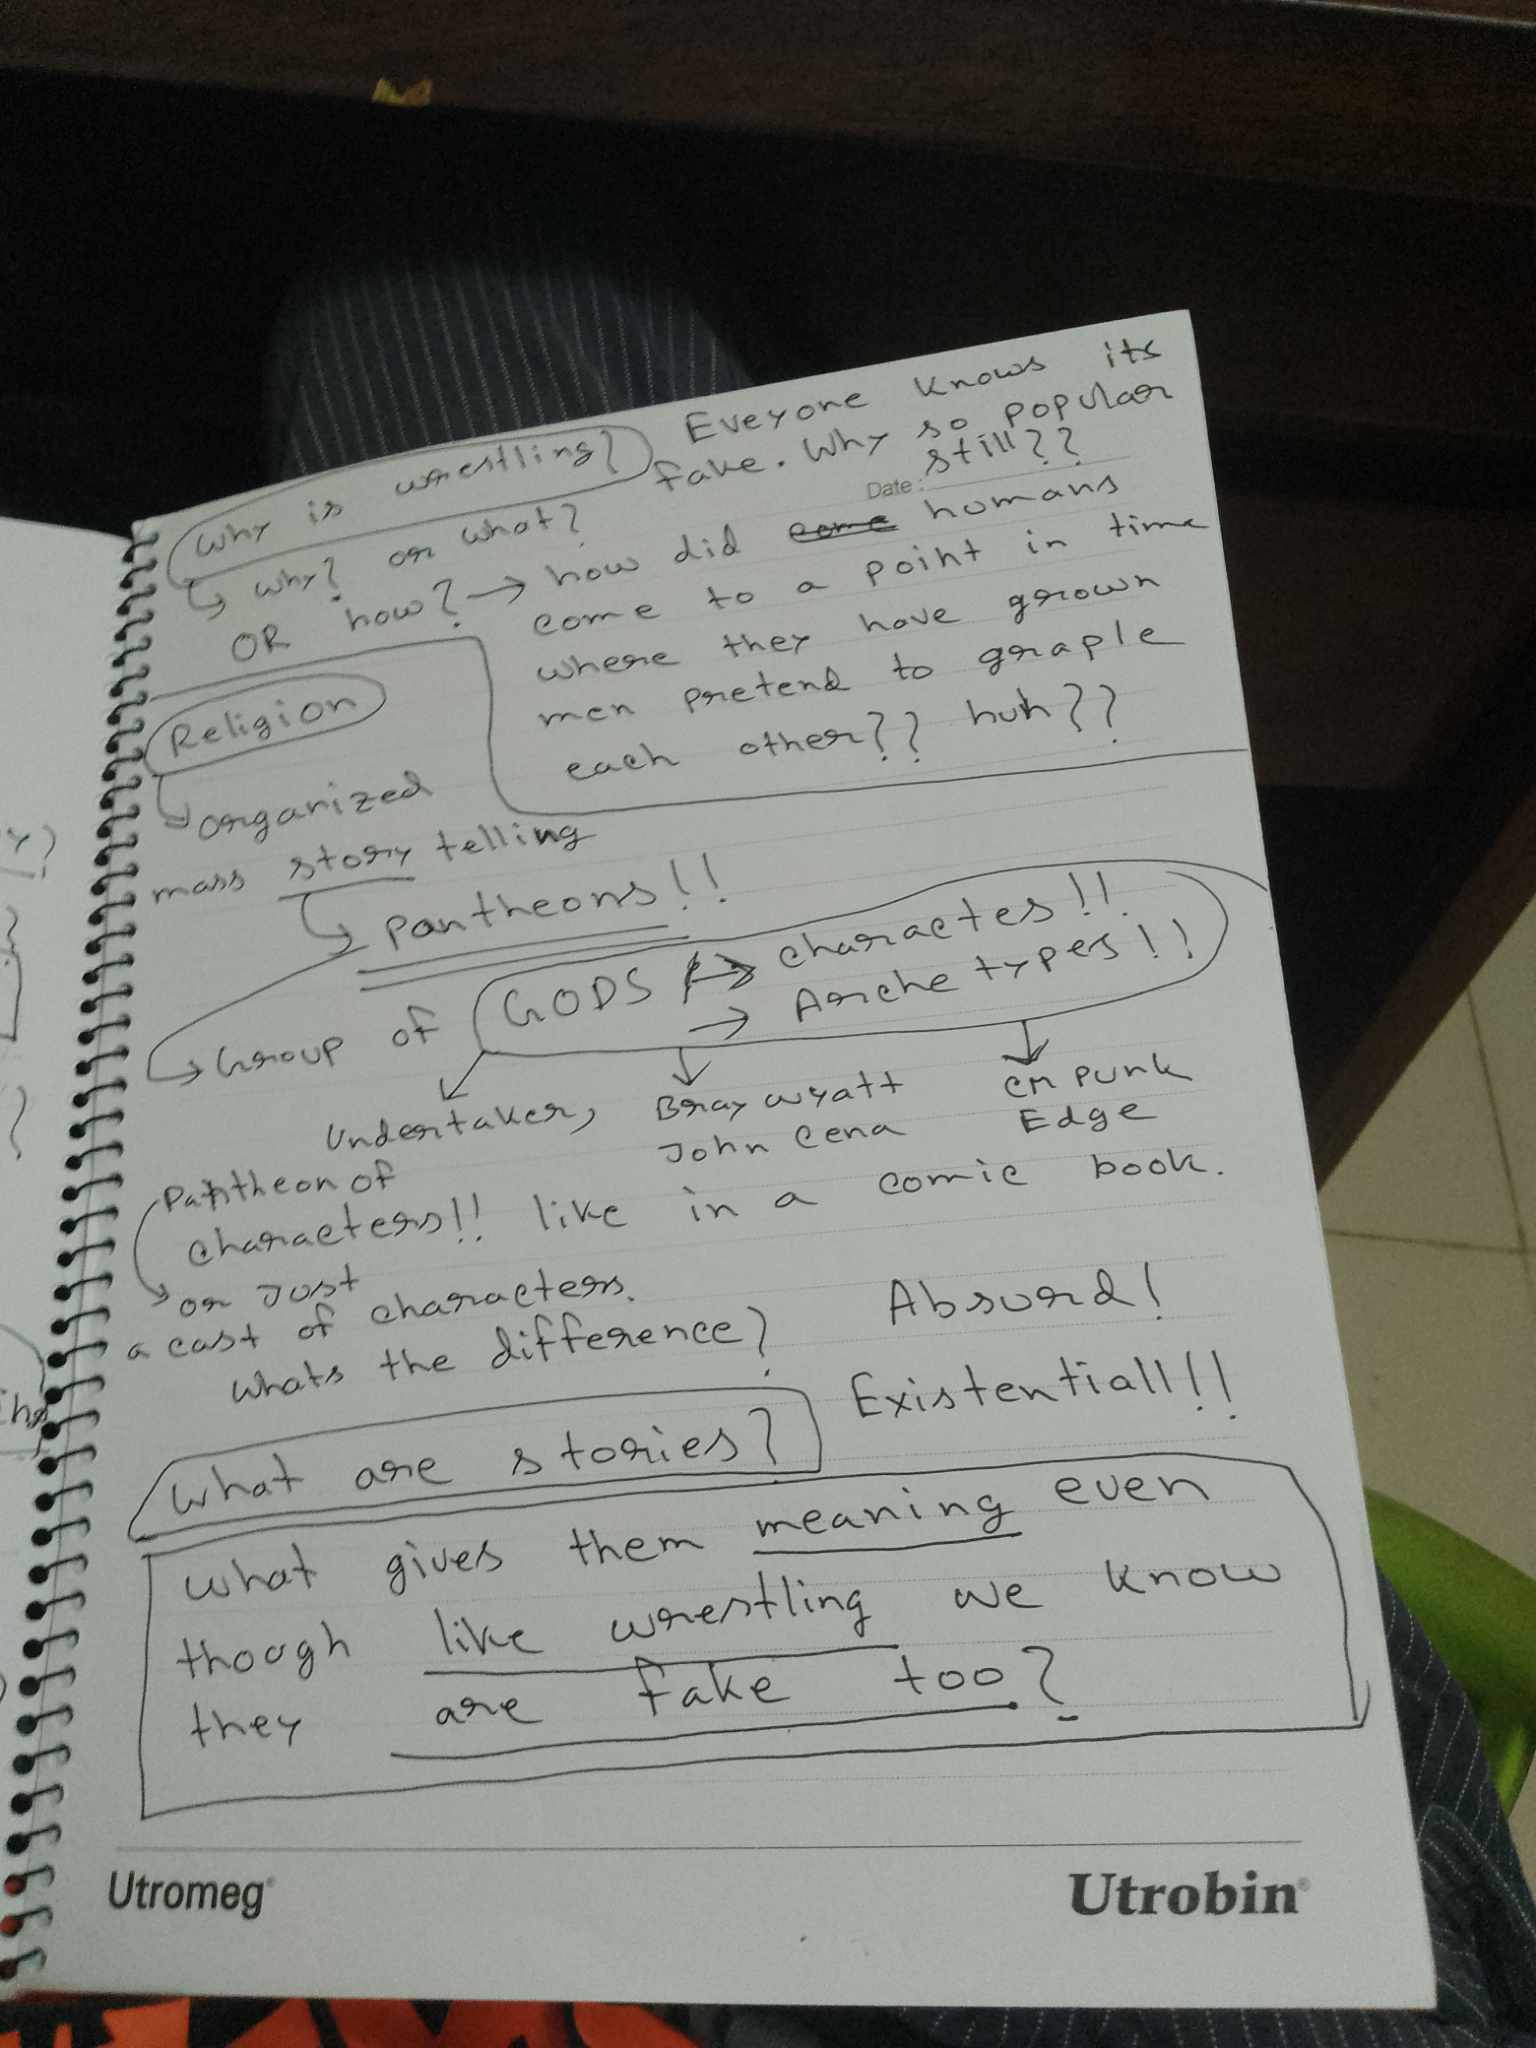 Why is wrestling?
Eveyone knows its
fake. Why so popular
still??
Date:
↳ why? or what?
OR how? → how did come humans
come to a point in time
where they have grown
men pretend to graple
each other?? huh??
Religion
↳ organized
mass story telling
↳ pantheons!!
↳ Group of GODS → charactes!!
→ Archetypes!!
Undertaker, Bray wyatt CM PUNK
John Cena Edge
Pantheon of
characters!! like in a comic book.
↳ or Just
a cast of characters.
whats the difference?
Absurd!
Existentiall!!
What are stories?
what gives them meaning even
though like wrestling we know
they are fake too?
Utromeg®
Utrobin®